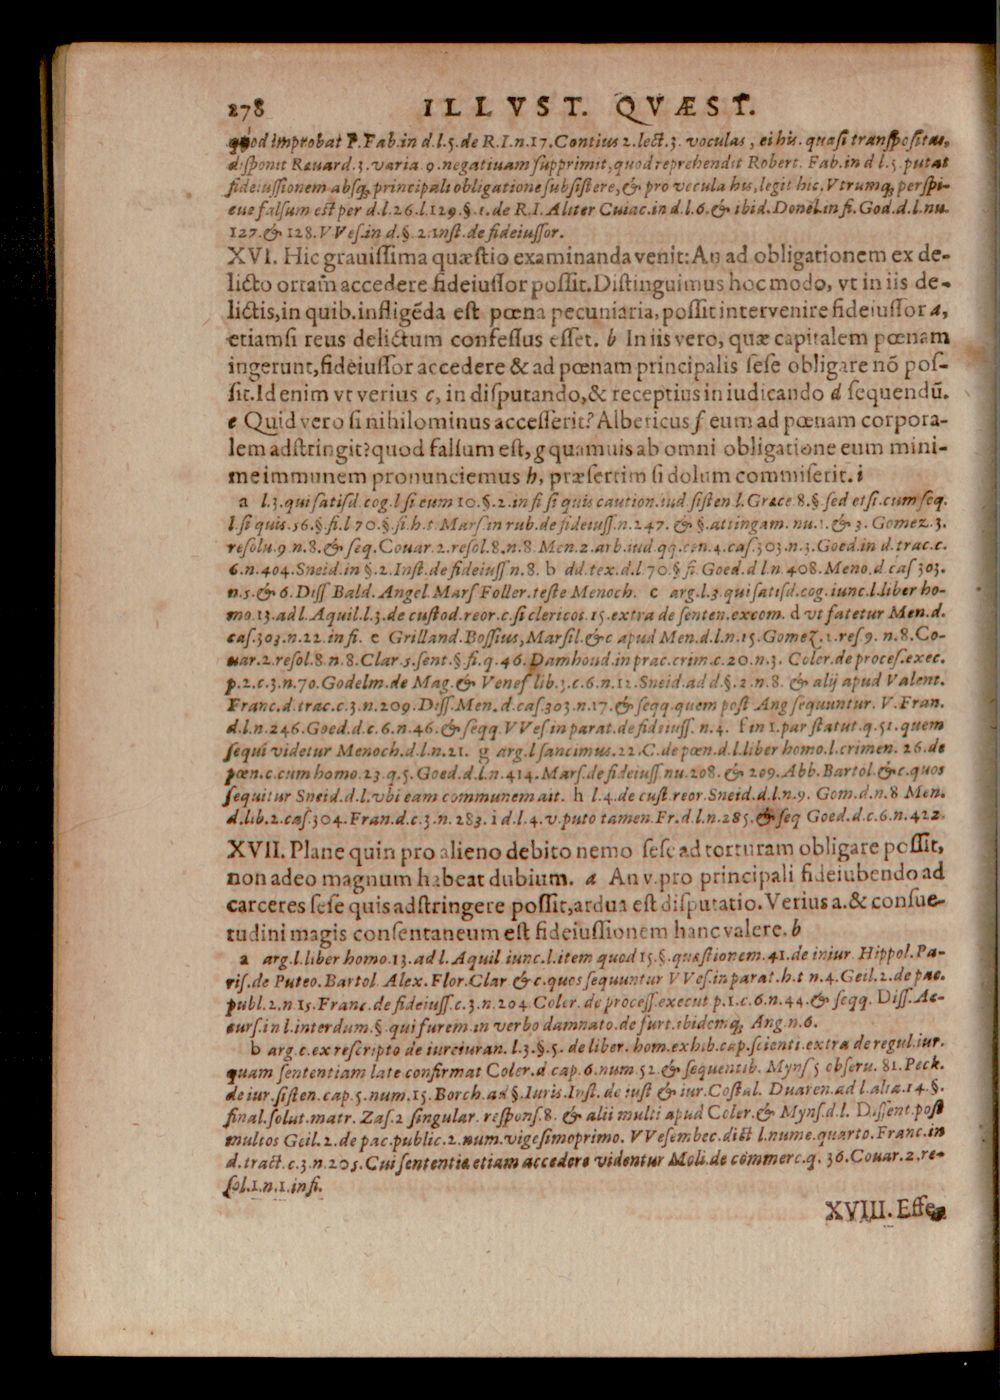 278 ILLVST. QVÆST.
quod improbat P. Fab. in d.l.5. de R.I.n.17. Contius 2. lect. 3. voculas, ei his. quasi transpositas,
disponit Reuard. 3. varia. 9. negatiuam supprimit, quod reprehendit Robert. Fab. in d l.5. putat
fideiussionem absq; principali obligatione subsistere, & pro vocula his, legit hic. Vtrumq; perspi-
cue falsum est per d.l.26.l.129.§.1. de R.I. Aliter Cuiac. in d.l.6. & ibid. Donel. in fi. God. d.l. nu.
127. & 128. VVes. in d.§.2. inst. de fideiussor.
XVI. Hic grauissima quæstio examinanda venit: An ad obligationem ex de-
licto ortam accedere fideiussor possit. Distinguimus hoc modo, vt in iis de-
lictis, in quib. infligēda est pœna pecuniaria, possit intervenire fideiussor a,
etiamsi reus delictum confessus esset. b In iis vero, quæ capitalem pœnam
ingerunt, fideiussor accedere & ad pœnam principalis sese obligare nō pos-
sit. Id enim vt verius c, in disputando, & receptius in iudicando d sequendū.
e Quid vero si nihilominus accesserit? Albericus f eum ad pœnam corpora-
lem adstringit? quod falsum est, g quamuis ab omni obligatione eum mini-
me immunem pronunciemus h, præsertim si dolum commiserit. i
a l.3. qui satisd. cog. l si eum 10.§.2. in fi si quis caution. iud sisten l. Græce 8.§. sed et si. cum seq.
l. si quis. 56.§. fi. l 70.§. si. h.t. Mars. in rub. de fideiuss. n. 247. & §. attingam. nu. 1. & 3. Gomez. 3.
resolu. 9 n. 8. & seq. Couar. 2. resol. 8. n. 8. Men. 2. arb. iud. qq. cen. 4. cas. 303. n. 3. Goed. in d. trac. c.
6. n. 404. Sneid. in §. 2. Inst. de fideiuss n. 8. b dd. tex. d. l 70. § fi. Goed. d l n. 408. Meno. d cas 303.
n. 5. & 6. Diss Bald. Angel Mars Foller. teste Menoch. c arg. l. 3. qui satisd. cog. iunc. l. liber ho-
mo. 13. ad l. Aquil. l. 3. de custod. reor. c. si clericos. 15. extra de senten. excom. d vt fatetur Men. d.
cas. 303. n. 22. in fi. e Grilland. Bossius, Marsil. & c apud Men. d. l. n. 15. Gomez. 1. res 9. n. 8. Co-
uar. 2. resol. 8 n. 8. Clar. 5. sent. § fi. q. 46. Damhoud. in prac. crim. c. 20. n. 3. Coler. de proces. exec.
p. 2. c. 3. n. 70. Godelm. de Mag. & Venef lib. 3. c. 6. n. 12. Sneid. ad d. §. 2. n. 8. & alij apud Valent.
Franc. d. trac. c. 3. n. 209. Diss. Men. d. cas 303. n. 17. & seqq. quem post Ang sequuntur. V. Fran.
d. l. n. 246. Goed. d. c. 6. n. 46. & seqq VVes in parat. de fideiuss. n. 4. f in 1. par statut. q. 51. quem
sequi videtur Menoch. d. l. n. 21. g arg. l sancimus. 22. C. de pœn. d. l. liber homo. l. crimen. 26. de
pœn. c. cum homo. 23. q. 5. Goed. d. l. n. 414. Mars. de fideiuss. nu. 208. & 209. Abb. Bartol. & c. quos
sequitur Sneid. d. l. vbi eam communem ait. h l. 4. de cust. reor. Sneid. d. l. n. 9. Gom. d. n. 8 Men.
d. lib. 2. cas. 304. Fran. d. c. 3. n. 283. i d. l. 4. v. puto tamen. Fr. d. l. n. 285. & seq Goed. d. c. 6. n. 422.
XVII. Plane quin pro alieno debito nemo sese ad torturam obligare possit,
non adeo magnum habeat dubium. a An v. pro principali fideiubendo ad
carceres sese quis adstringere possit, ardua est disputatio. Verius a. & consue-
tudini magis consentaneum est fideiussionem hanc valere. b
a arg. l. liber homo. 13. ad l. Aquil iunc. l. item quod 15. §. quæstionem. 41. de iniur. Hippol. Pa-
ris. de Puteo. Bartol. Alex. Flor. Clar & c. quos sequuntur VVes. in parat. h. t n. 4. Geil. 2. de pac.
publ. 2. n 15. Franc. de fideiuss. c. 3. n. 204 Coler. de process. execut p. 1. c. 6. n. 44. & seqq. Diss. Ac-
curs. in l. interdum. §. qui furem. in verbo damnato. de furt. ibidemq; Ang. n. 6.
b arg. c. ex rescripto de iureiuran. l. 3. §. 5. de liber. hom. exhib. cap. scienti. extra de regul. iur.
quam sententiam late confirmat Coler. d cap. 6. num. 52. & sequentib. Myns 5 obseru. 81. Peck.
de iur. sisten. cap. 5. num. 15. Borch. ad §. Iuris. Inst. de iust & iur. Costal. Duaren. ad l. alia. 14. §.
final. solut. matr. Zas. 2 singular. respons. 8. & alii multi apud Coler. & Myns. d. l. Dissent. post
multos Geil. 2. de pac. public. 2. num. vigesimoprimo. VVesembec. dict l. nume. quarto. Franc. in
d. tract. c. 3. n. 205. Cui sententiæ etiam accedere videntur Moli. de commerc. q. 36. Couar. 2. re-
sol. 1. n. 1. in fi.
XVIII. Esse